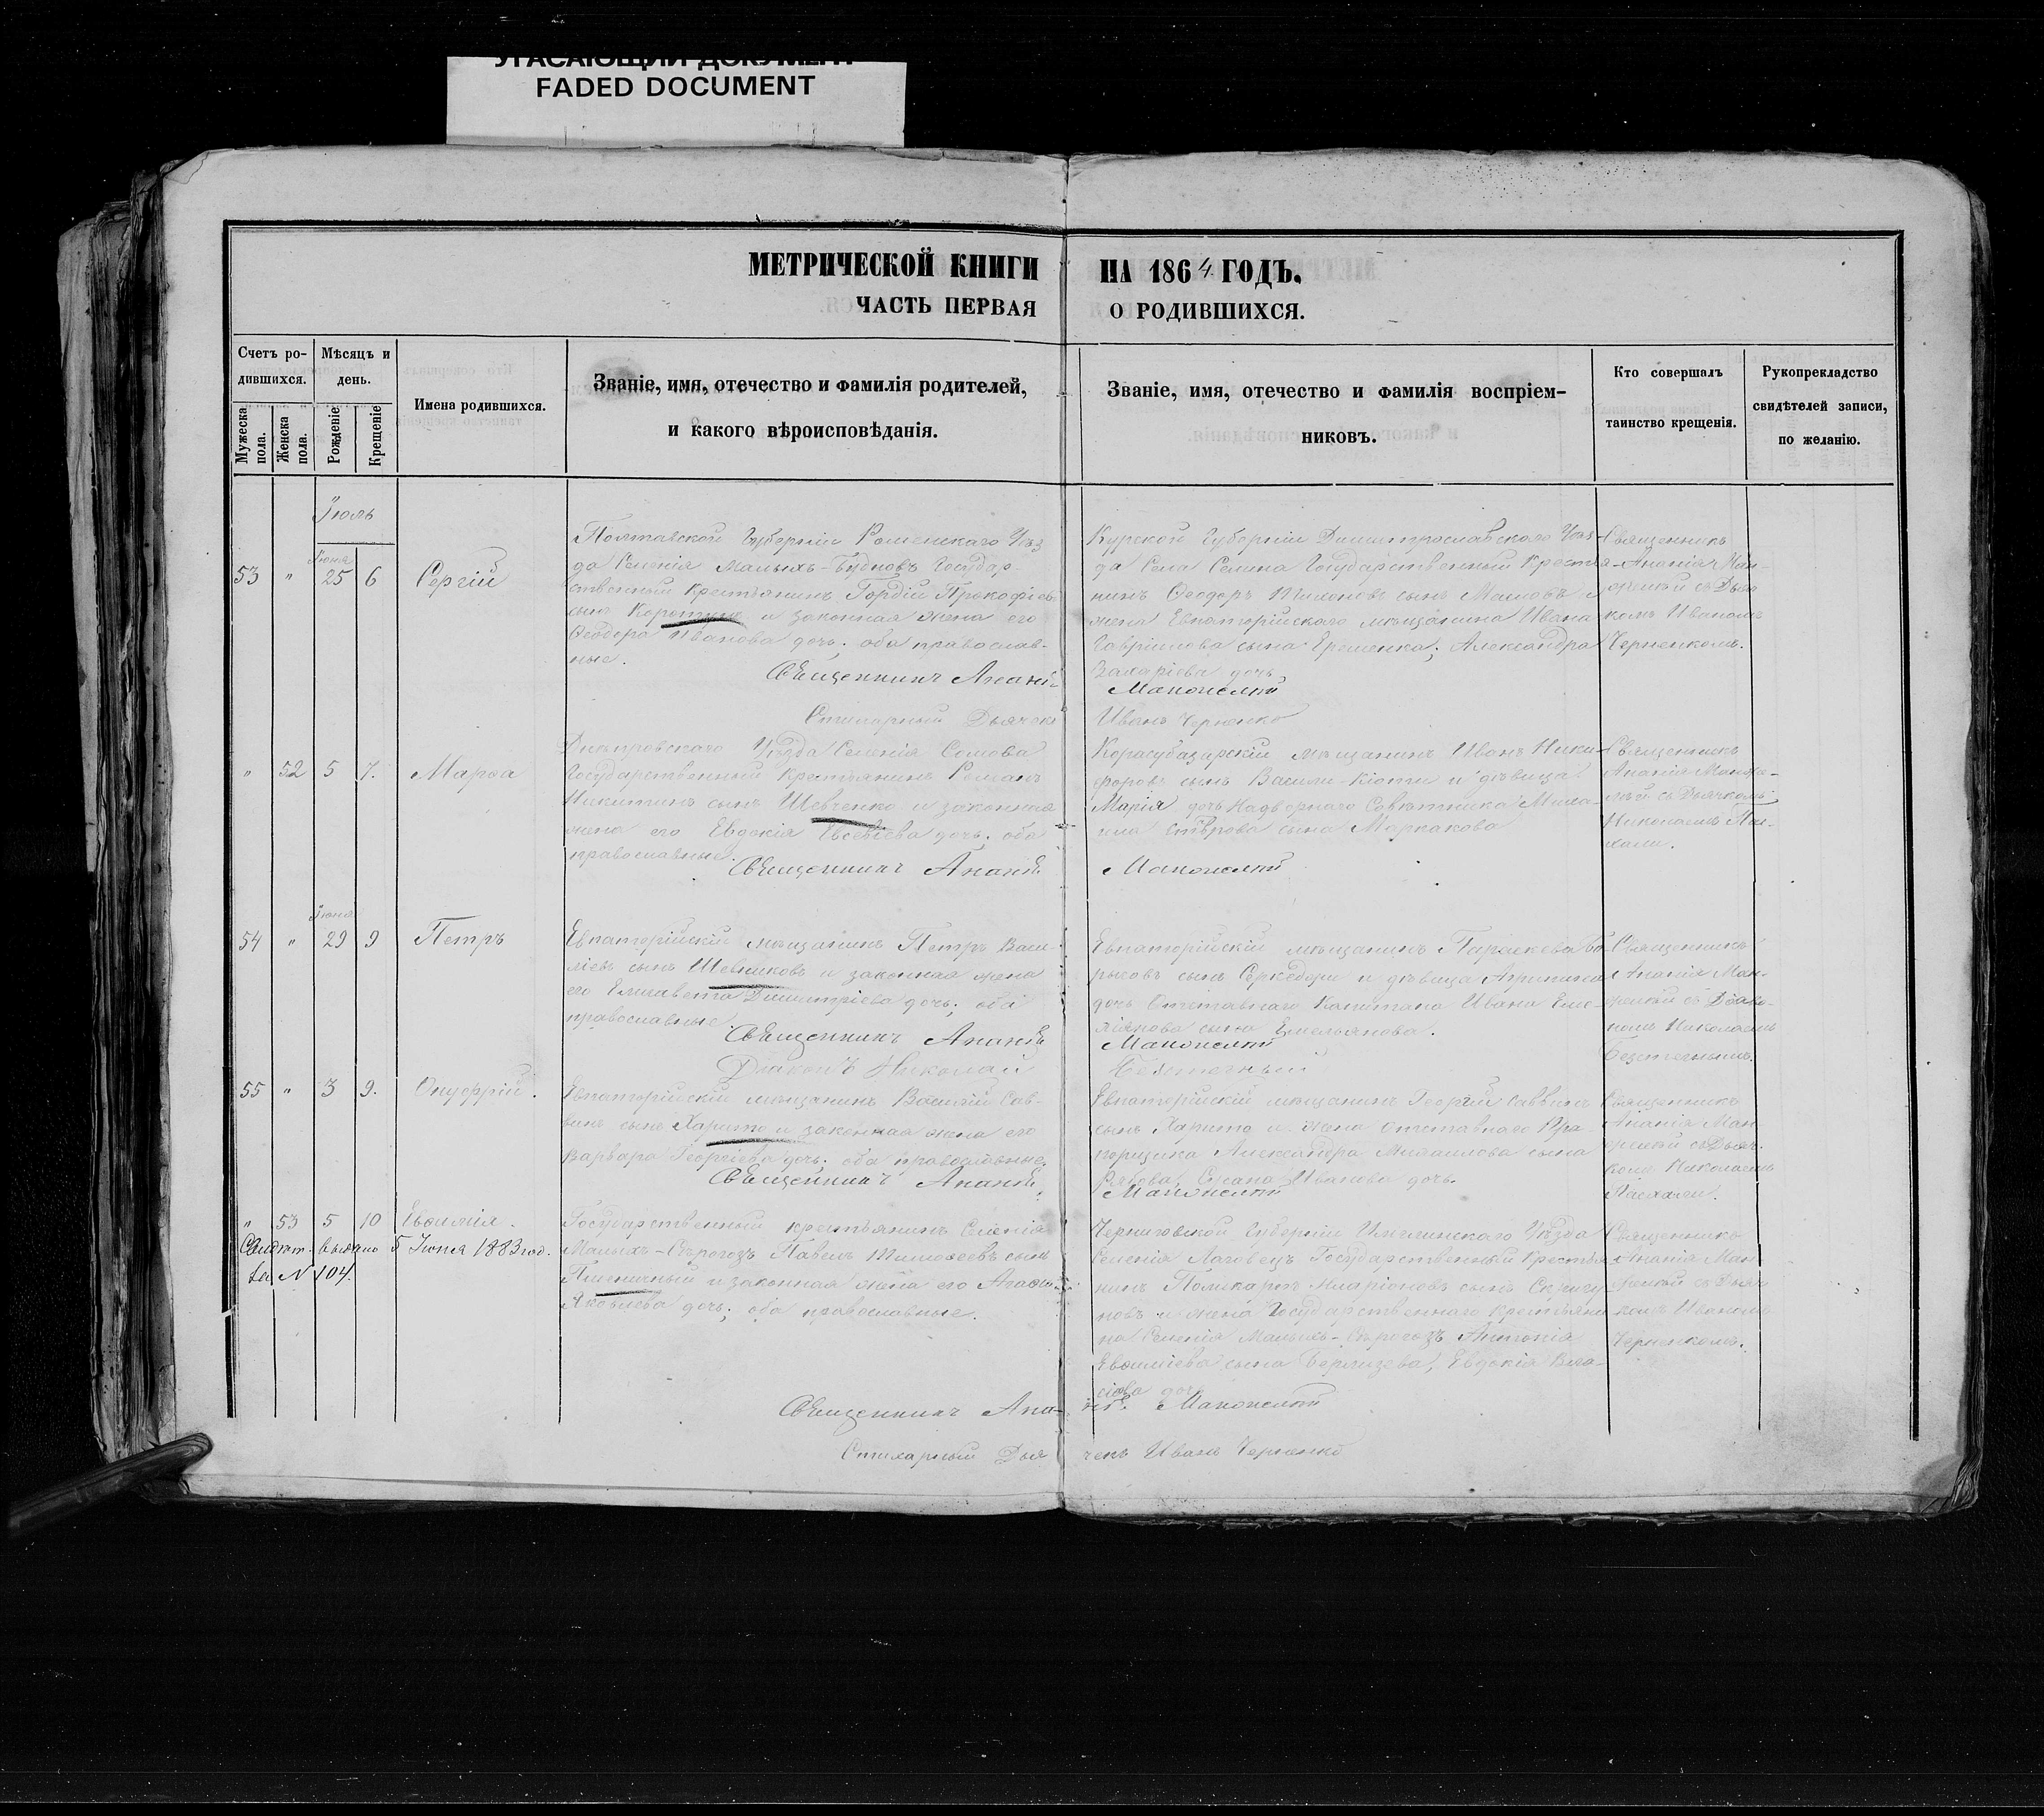 УГАСАЮЩИЙ ДОКУМЕНТ
FADED DOCUMENT
МЕТРИЧЕСКОЙ КНИГИ НА 1864 ГОДЪ.
ЧАСТЬ ПЕРВАЯ О РОДИВШИХСЯ.
Счетъ ро-
дившихся.
Мужеска пола.
Женска пола.
Мѣсяцъ и
день.
Рожденіе
Крещеніе
Имена родившихся.
Званіе, имя, отечество и фамилія родителей,
и какого вѣроисповѣданія.
Званіе, имя, отечество и фамилія воспріем-
никовъ.
Кто совершалъ
таинство крещенія.
Рукоприкладство
свидѣтелей записи,
по желанію.
Іюль
53 " Іюня 25 6 Сергій
Полтавской Губерніи Роменскаго Уѣз
да Селенія Малыхъ-Бубновъ Государ-
ственный Крестьянинъ Гордій Прокофіевъ
сынъ и законная жена его
Ѳеодора Иванова дочь; оба православ-
ные.
Священникъ Ананій
Стихарный Дьячекъ
Курской Губерніи Димитрославскаго Уѣз
да Села Селина Государственный Крестья-
нинъ Ѳеодоръ Тихоновъ сынъ Масловъ и
жена Евпаторійскаго мѣщанина Ивана
Гавріилова сына Ерешенка; Александра
Захаріева дочь
Манжелей
Иванъ Черненко
Священникъ
Ананія Ман-
желей съ Дьяч
комъ Иваномъ
Черненкомъ.
" 52 5 7. Марѳа
Днѣпровскаго Уѣзда Селенія
Государственный Крестьянинъ Романъ
Никитинъ сынъ Шевченко и законная
жена его Евдокія Евсевіева дочь; оба
православные.
Священникъ Ананій
Карасубазарскій мѣщанинъ Иванъ Ники-
форовъ сынъ Васили-Кіоти и дѣвица
Марія дочь Надворнаго Совѣтника Миха-
ила сына
Манжелей
Священникъ
Ананія Манже-
лей съ Дьячкомъ
Николаемъ Пас-
хали.
54 " Іюня 29 9 Петръ
Евпаторійскій мѣщанинъ Петръ Васи-
ліевъ сынъ Шевчиковъ и законная жена
его Елизавета Димитріева дочь; оба
православные.
Священникъ Ананій
Діаконъ Николай
Евпаторійскій мѣщанинъ Параскева
сынъ и дѣвица Агрипина
дочь Отставнаго Капитана Ивана Еме-
ліянова сына Емельянова.
Манжелей
Безстечный
Священникъ
Ананія Ман-
желей съ Діако-
номъ Николаемъ
Безстечнымъ.
55 " 3 9. Онуфрій.
Евпаторійскій мѣщанинъ Василій Сав-
винъ сынъ Харито и законная жена его
Варвара Георгіева дочь; оба православные.
Священникъ Ананій
Евпаторійскій мѣщанинъ Георгій Саввинъ
сынъ Харито и жена отставнаго Пра-
порщика Александра Михаилова сына
Рябова, Иванова дочь.
Манжелей
Священникъ
Ананія Ман
желей съ Дьяч-
комъ Николаемъ
Пасхали.
" 53 5 10 Евѳимія.
выдано 5 Іюня 1883 год.
за № 104.
Государственный крестьянинъ Селенія
Малыхъ-Сѣрогозъ Павелъ Тимоѳеевъ сынъ
Пшеничный и законная жена его Агаѳія
Яковлева дочь; оба православные.
Черниговской Губерніи Уѣзда
Селенія Государственный Крестья
нинъ Поликарпъ Иларіоновъ сынъ
новъ и жена Государственнаго Крестьяни
на Селенія Малыхъ-Сѣрогозъ Антонія
Евѳиміева сына Евдокія Вла-
сіева дочь
Священникъ Ананій Манжелей
Стихарный Дьячекъ Иванъ Черненко
Священникъ
Ананія Ман
желей съ Дьяч
комъ Иваномъ
Черненкомъ.